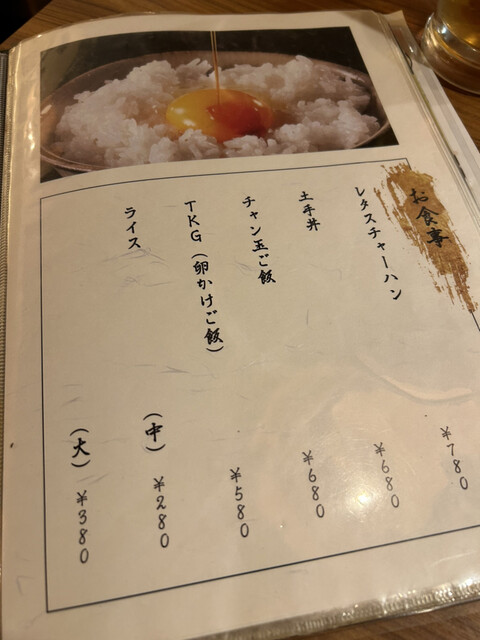 お食事
レタスチャーハン ¥780
土手丼 ¥680
チャン玉ご飯 ¥680
TKG(卵かけご飯) ¥580
ライス (中) ¥280
(大) ¥380